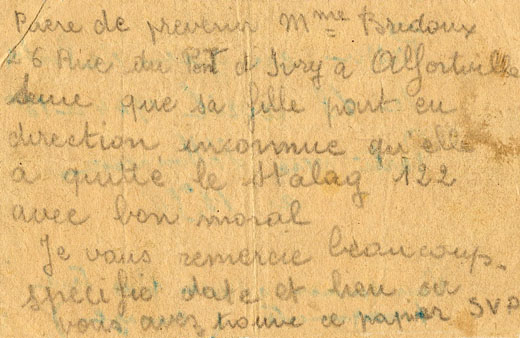 Prère de prevenir Mme Bredoux
26 Rue du Pont d'Ivry à Alfortville
Seine que sa fille part en
direction inconnue qu'elle
a quitté le Stalag 122
avec bon moral
Je vous remercie beaucoup.
spécifié date et lieu ou
vous avez trouvé ce papier SVP